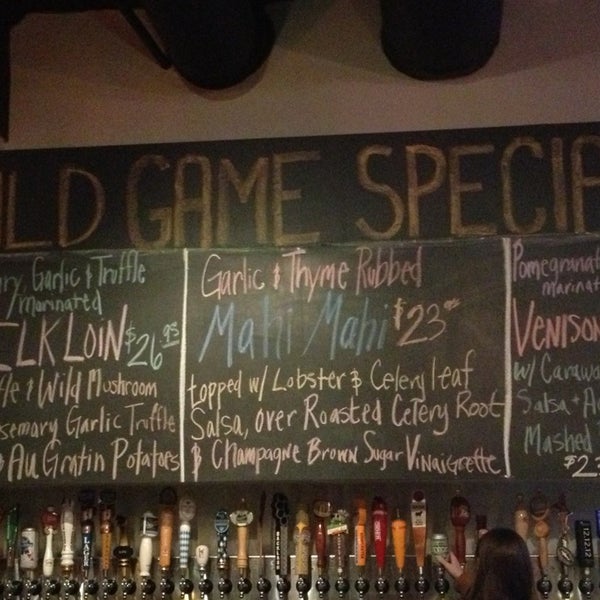 ILD GAME SPECIA
ry Garlic & Truffle
marinated
ELK LOIN $26.95
fle & Wild Mushroom
semary Garlic Truffle
& Au Gratin Potatoes
Garlic & Thyme Rubbed
Mahi Mahi $23
topped w/ Lobster & Celery leaf
Salsa, over Roasted Celery Root
& Champagne Brown Sugar Vinaigrette
Pomegrana
marina
VENISON
w/ Carawa
Salsa + A
Mashed
$23
12.12.12